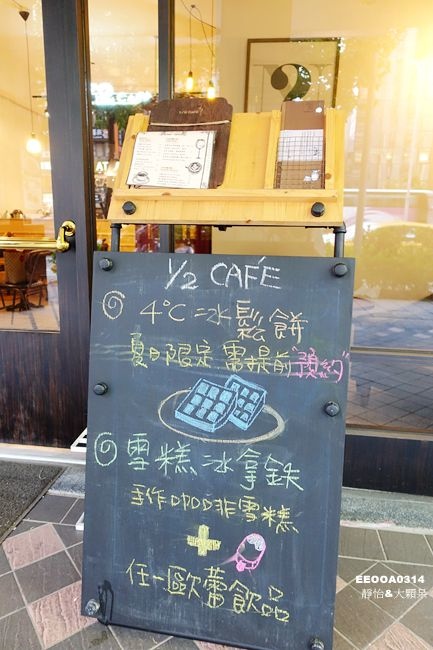 1/2 CAFÉ
4°C 冰鬆餅
夏日限定 需提前"預約"
雪糕冰拿鉄
手作咖啡雪糕
+
任一歐蕾飲品
EEOOA0314
靜怡&大顆呆